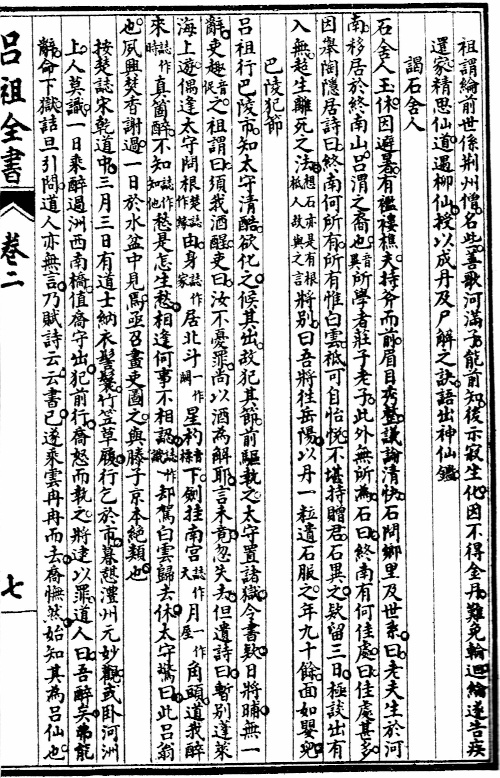 祖謂綸前世係荆州僧名些善歌河滿子能前知後亦寂生化因不得金丹難免輪迴綸遂告疾
還家精思仙道遇柳仙授以成丹及尸解之訣語出神仙鑑
謁石舍人
石舍人玉休因避暑有襤褸樵夫持斧而前眉目秀整議論清快石問鄉里及世系曰老夫生於河
南移居於終南山呂渭之裔也異音所學者莊子老子此外無所為石曰終南有何佳處曰佳處甚多
因舉陶隱居詩曰終南何所有所有惟白雲祗可自怡悅不堪持贈君石異之欵留三日極談出有
入無超生離死之法想石亦是有根祗人故與之言將別曰吾將往岳陽以丹一粒遺石服之年九十餘面如嬰兒
巴陵犯節
呂祖行巴陵市知太守清酷欲化之候其出故犯其節前驅執之太守置諸獄令書欵日將晡無一
辭吏趣音促之祖謂曰須我酒醒吏曰汝不憂罪尚以酒為解耶言未竟忽失去但遺詩曰暫別蓬萊
海上遊偶逢太守問根楚誌作緣由身家誌作居北斗一作闕星杓音標下劍挂南宮誌作天月一作屋角頭道我醉
來誌作時真箇醉不知誌作知他愁是怎生愁相逢何事不相認誌作識却駕白雲歸去休太守驚曰此呂翁
也夙興焚香謝過一日於水盆中見焉亟召畫吏圖之與滕子京本絕類也
按楚誌宋乾道中三月三日有道士納衣髽鬢竹笠草履行乞於市暮憇澧州元妙觀或卧河洲
上人莫識一日乘醉過洲西南橋值喬守出犯前行喬怒而執之將逮以罪道人曰吾醉矣弗能
辭命下獄詰旦引問道人亦無言乃賦詩云云書已遂乘雲冉冉而去喬憮然始知其為呂仙也
呂祖全書
卷二
七